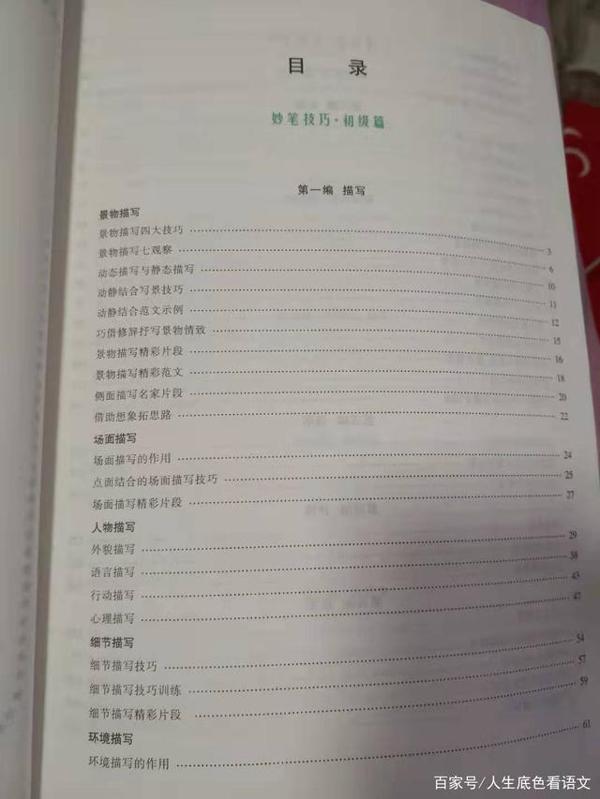 目 录
妙笔技巧·初级篇
第一编 描写
景物描写
景物描写四大技巧 3
景物描写七观察 6
动态描写与静态描写 10
动静结合写景技巧 11
动静结合范文示例 12
巧借修辞抒写景物情致 15
景物描写精彩片段 16
景物描写精彩范文 18
侧面描写名家片段 20
借助想象拓思路 22
场面描写
场面描写的作用 24
点面结合的场面描写技巧 25
场面描写精彩片段 27
人物描写
外貌描写 29
语言描写 38
行动描写 43
心理描写 47
细节描写
细节描写技巧 54
细节描写技巧训练 57
细节描写精彩片段 59
环境描写
环境描写的作用 61
百家号/人生底色看语文